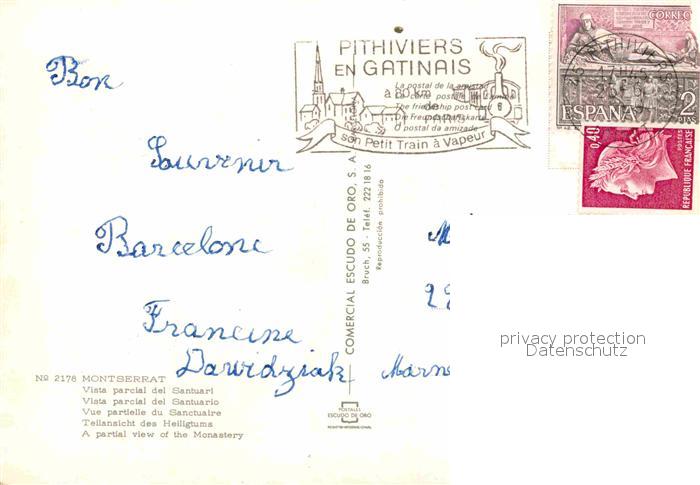 Bon
Souvenir
Barcelone
Francine
Dawidziak
Marn
PITHIVIERS
EN GATINAIS
à 80 km
de
Paris
son Petit Train à Vapeur
La postal de la amistad
The friendship post card
Die Freundschaftskarte
O postal da amizade
CORREO
ESPAÑA
2
PTAS
PITHIVIERS
0,40
POSTES
REPUBLIQUE FRANÇAISE
COMERCIAL ESCUDO DE ORO, S. A.
Bruch, 55 - Teléf. 222 18 16
Reproducción prohibida
privacy protection
Datenschutz
No 2178 MONTSERRAT
Vista parcial del Santuari
Vista parcial del Santuario
Vue partielle du Sanctuaire
Teilansicht des Heiligtums
A partial view of the Monastery
POSTALES
ESCUDO DE ORO